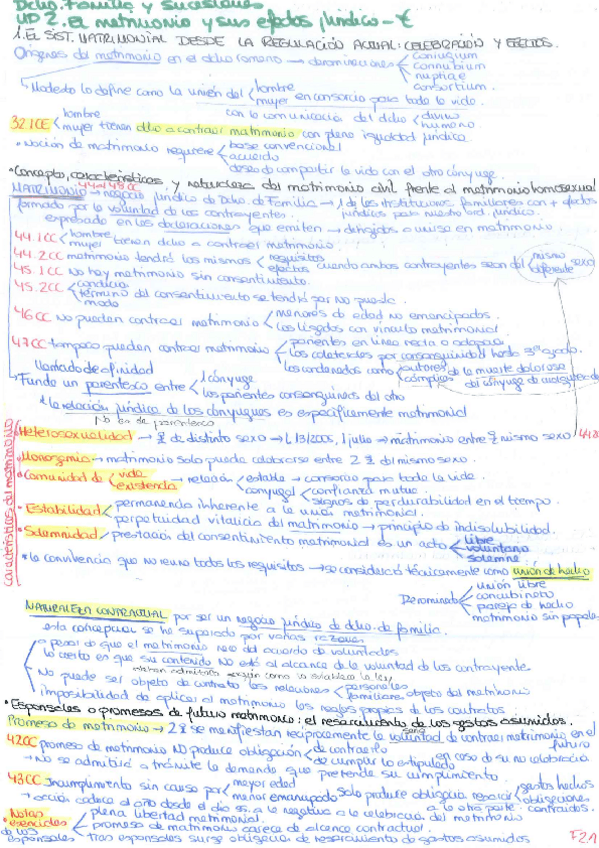 Dcho. Familia y Sucesiones
UD 2. El matrimonio y sus efectos jurídico-€
1. EL SIST. MATRIMONIAL DESDE LA REGULACIÓN ACTUAL: CELEBRACIÓN Y EFECTOS.
Orígenes del matrimonio en el dcho romano → denominaciones coniugium
connubium
nuptiae
consortium.
Modesto lo define como la unión del hombre
mujer en consorcio para toda la vida.
con la comunicación del dcho divino
humano
32.1CE hombre
mujer tienen dcho a contraer matrimonio con plena igualdad jurídica
• Noción de matrimonio requiere base convencional
acuerdo
deseo de compartir la vida con el otro cónyuge.
• Concepto, características y naturaleza del matrimonio civil frente al matrimonio homosexual
44 al 48 CC
MATRIMONIO → negocio jurídico de Dcho. de Familia → 1 de las instituciones familiares con + efectos
formado por la voluntad de los contrayentes. jurídicos para nuestro ord. jurídico.
expresado en las declaraciones que emiten → dirigidas a unirse en matrimonio.
44.1CC hombre
mujer tienen dcho a contraer matrimonio
44.2CC matrimonio tendrá los mismos requisitos
efectos cuando ambos contrayentes sean del mismo sexo
diferente
45.1CC No hay matrimonio sin consentimiento.
45.2CC condición
término del consentimiento se tendrá por no puesta.
modo
46CC no pueden contraer matrimonio menores de edad no emancipados.
los ligados con vínculo matrimonial
47CC tampoco pueden contraer matrimonio parientes en línea recta o adopción
los colaterales por consanguinidad hasta 3er grado.
los condenados como autores
cómplices de la muerte dolosa
del cónyuge de cualquiera de
llamado de afinidad
• Funda un parentesco entre 1 cónyuge
los parientes consanguíneos del otro
* la relación jurídica de los cónyuges es específicamente matrimonial
No es de parentesco
Características del matrimonio
• Heterosexualidad → 2 de distinto sexo → L 13/2005, 1 julio → matrimonio entre 2 mismo sexo 44.2CC
• Monogamia → matrimonio solo puede celebrarse entre 2 del mismo sexo.
• Comunidad de vida
existencia → relación estable → consorcio para toda la vida.
conyugal confianza mutua.
signos de perdurabilidad en el tiempo.
• Estabilidad permanencia inherente a la unión matrimonial.
perpetuidad vitalicia del matrimonio → principio de indisolubilidad.
• Solemnidad prestación del consentimiento matrimonial es un acto libre
voluntario
solemne
* la convivencia que no reúna todos los requisitos → se considera técnicamente como unión de hecho
Denominada unión libre
concubinato
pareja de hecho
matrimonio sin papeles
NATURALEZA CONTRACTUAL por ser un negocio jurídico de dcho. de familia.
esta concepción se ha superado por varias razones
a pesar de que el matrimonio nace del acuerdo de voluntades
lo cierto es que su contenido NO está al alcance de la voluntad de los contrayentes.
No puede ser objeto de contrato las relaciones personales
familiares objeto del matrimonio
imposibilidad de aplicar al matrimonio las reglas propias de los contratos.
• Esponsales o promesas de futuro matrimonio: el resarcimiento de los gastos asumidos.
Promesa de matrimonio → 2 se manifiestan recíprocamente la voluntad de contraer matrimonio en el
seria futuro
42CC promesa de matrimonio NO produce obligación de contraerlo
de cumplir lo estipulado en caso de su no celebración
→ No se admitirá a trámite la demanda que pretenda su cumplimiento.
43CC Incumplimiento sin causa por mayor edad
menor emancipado solo produce obligación resarcir gastos hechos
obligaciones
a la otra parte contraídas.
→ acción caduca al año desde el día ss. a la negativa a la celebración del matrimonio
• Notas
esenciales
de los
esponsales
plena libertad matrimonial.
promesa de matrimonio carece de alcance contractual.
tras esponsales surge obligación de resarcimiento de gastos asumidos
F2.1